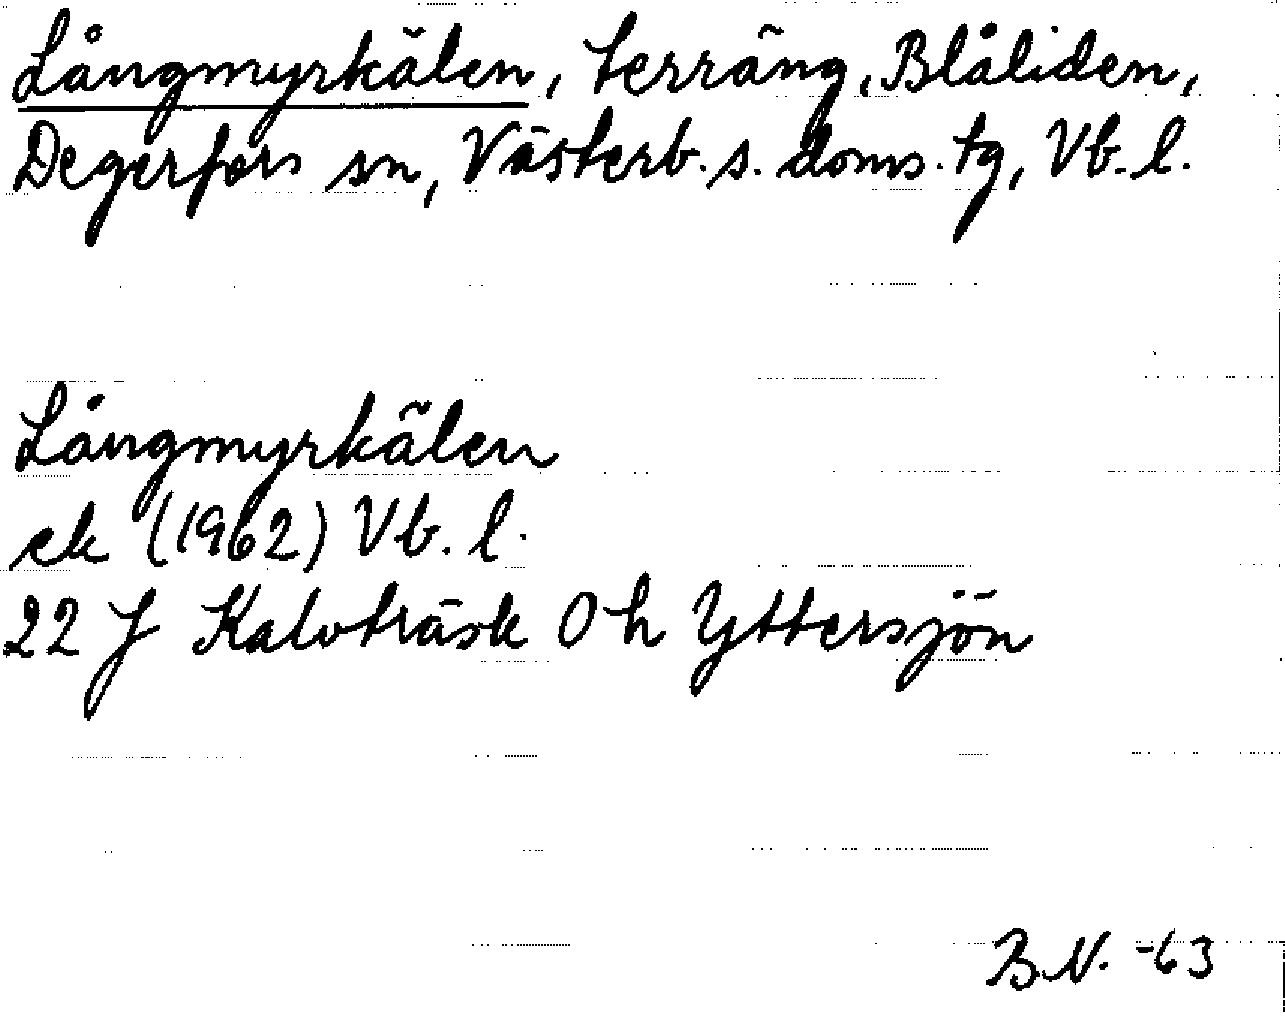 Långmyrkälen, terräng, Blåliden,
Degerfors sn, Västerb. s. doms. tg, Vb. l.
Långmyrkälen
ek (1962) Vb. l.
22 J Kalvträsk 0 h Yttersjön
B.N. -63